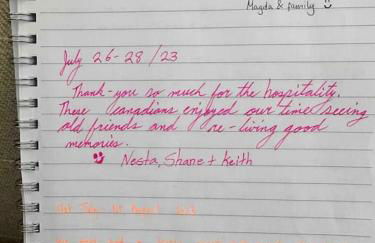 Magda & family
July 26-28/23
Thank-you so much for the hospitality.
These canadians enjoyed our time seeing
old friends and re-living good
memories.
Nesta, Shane + Keith